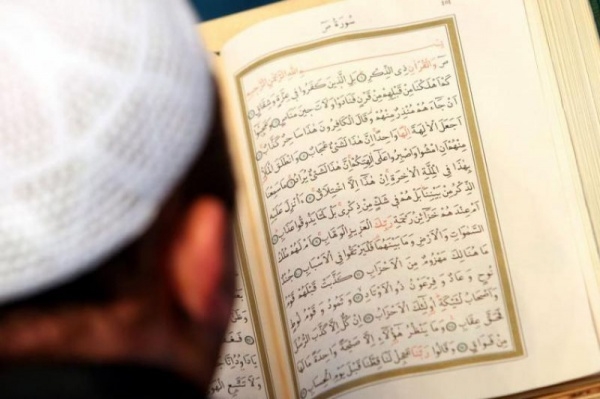 سُورَةُ صٓ
بِسْمِ اللّٰهِ الرَّحْمٰنِ الرَّحِيمِ
صٓ وَالْقُرْاٰنِ ذِي الذِّكْرِ بَلِ الَّذِينَ كَفَرُوا فِي عِزَّةٍ وَشِقَاقٍ
كَمْ اَهْلَكْنَا مِنْ قَبْلِهِمْ مِنْ قَرْنٍ فَنَادَوْا وَلَاتَ حِينَ مَنَاصٍ وَعَجِبُوا
اَنْ جَاءَهُمْ مُنْذِرٌ مِنْهُمْ وَقَالَ الْكَافِرُونَ هٰذَا سَاحِرٌ كَذَّابٌ
اَجَعَلَ الْاٰلِهَةَ اِلٰهًا وَاحِدًا اِنَّ هٰذَا لَشَيْءٌ عُجَابٌ وَانْطَلَقَ الْمَلَأُ
مِنْهُمْ اَنِ امْشُوا وَاصْبِرُوا عَلٰى اٰلِهَتِكُمْ اِنَّ هٰذَا لَشَيْءٌ يُرَادُ مَا سَمِعْنَا
بِهٰذَا فِي الْمِلَّةِ الْاٰخِرَةِ اِنْ هٰذَا اِلَّا اخْتِلَاقٌ ءَاُنْزِلَ عَلَيْهِ
الذِّكْرُ مِنْ بَيْنِنَا بَلْ هُمْ فِي شَكٍّ مِنْ ذِكْرِي بَلْ لَمَّا يَذُوقُوا عَذَابِ
اَمْ عِنْدَهُمْ خَزَائِنُ رَحْمَةِ رَبِّكَ الْعَزِيزِ الْوَهَّابِ اَمْ لَهُمْ مُلْكُ
السَّمٰوَاتِ وَالْاَرْضِ وَمَا بَيْنَهُمَا فَلْيَرْتَقُوا فِي الْاَسْبَابِ جُنْدٌ
مَا هُنَالِكَ مَهْزُومٌ مِنَ الْاَحْزَابِ كَذَّبَتْ قَبْلَهُمْ قَوْمُ
نُوحٍ وَعَادٌ وَفِرْعَوْنُ ذُو الْاَوْتَادِ وَثَمُودُ وَقَوْمُ لُوطٍ
وَاَصْحَابُ لْـَٔيْكَةِ اُولٰئِكَ الْاَحْزَابُ اِنْ كُلٌّ اِلَّا كَذَّبَ الرُّسُلَ
فَحَقَّ عِقَابِ وَمَا يَنْظُرُ هٰؤُلَاءِ اِلَّا صَيْحَةً وَاحِدَةً مَا لَهَا
مِنْ فَوَاقٍ وَقَالُوا رَبَّنَا عَجِّلْ لَنَا قِطَّنَا قَبْلَ يَوْمِ الْحِسَابِ